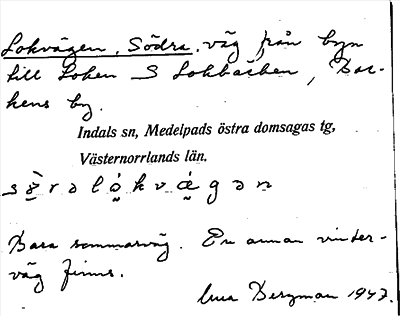 Lokvägen, Södra, väg från byn
till Loken S Lokbäcken, Bac-
kens by.
Indals sn, Medelpads östra domsagas tg,
Västernorrlands län.
Bara sommarväg. En annan vinter-
väg finns.
Bergman 1947.